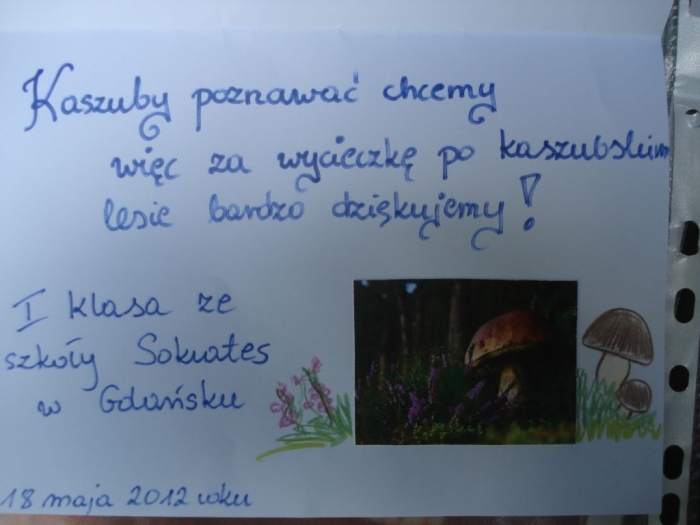 Kaszuby poznawać chcemy
więc za wycieczkę po kaszubskim
lesie bardzo dziękujemy!
I klasa ze
szkoły Sokrates
w Gdańsku
18 maja 2012 roku